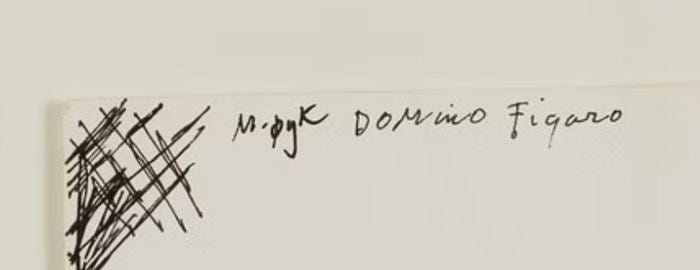 М·фук DOMino Figaro